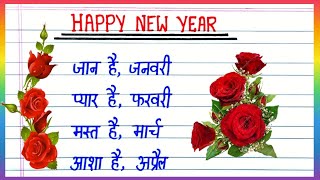 HAPPY NEW YEAR
जान है, जनवरी
प्यार है, फरवरी
मस्त है, मार्च
आशा है, अप्रैल